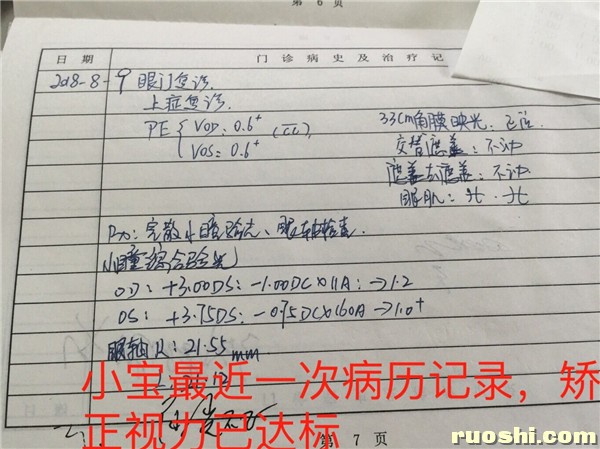 第 6 页
日 期 门 诊 病 史 及 治 疗 记
2018-8-9 眼门复诊.
上症复诊.
PE { VOD: 0.6⁺ (cc) 33cm角膜映光: 正位.
VOS: 0.6⁺ 交替遮盖: 不动
遮盖去遮盖: 不动
眼肌:
Rx: 完散小瞳验光、眼轴检查.
小瞳综合验光
OD: +3.00DS: -1.00DC×11A: →1.2
OS: +3.75DS: -0.75DC×160A →1.0⁺
眼轴 R: 21.55mm
小宝最近一次病历记录，矫
正视力已达标
第 7 页
ruoshi.com